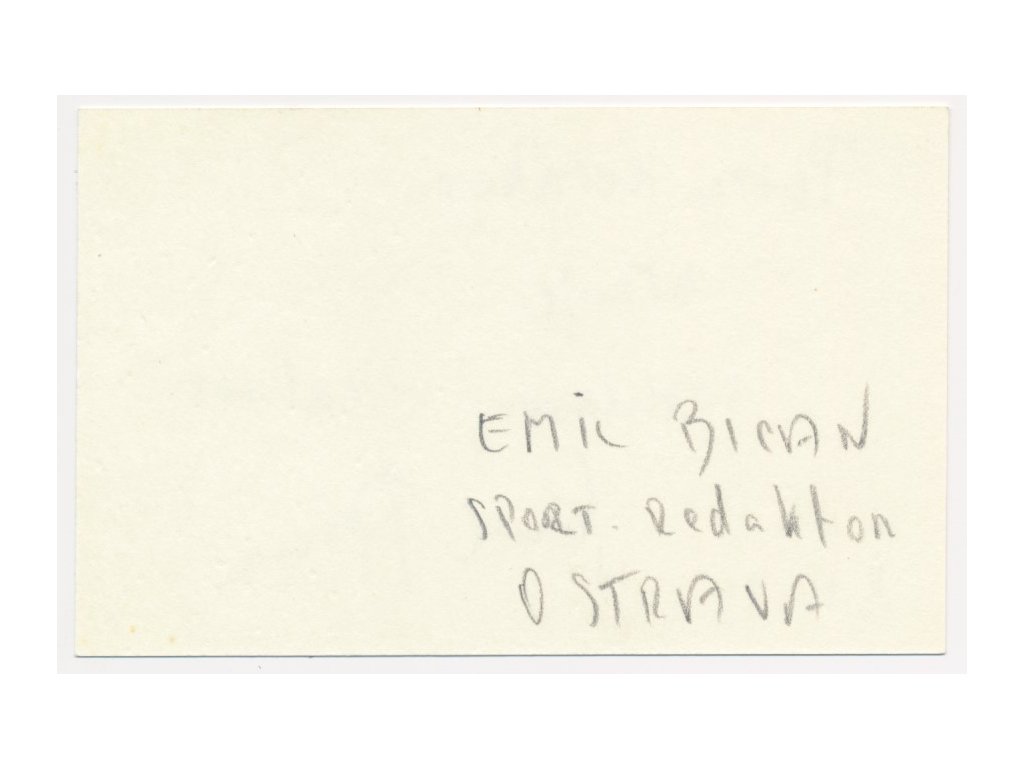 EMIL BICAN
SPORT. Redaktor
OSTRAVA